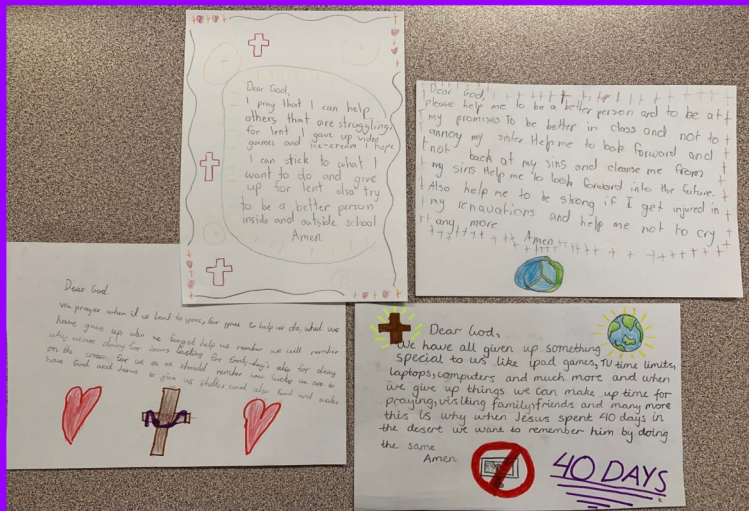 Dear God,
I pray that I can help
others that are struggling,
for lent I gave up video
games and ice-cream I hope
I can stick to what I
want to do and give
up for lent also try
to be a better person
inside and outside school
Amen
Dear God,
Please help me to be a better person and to be at
my promises To be better in class and not to
annoy my sister. Help me to look forward and
not back at my sins and cleanse me from
my sins Help me to look forward into the future.
Also help me to be strong if I get injured in
my renavations and help me not to cry
any more
Amen
Dear God.
We prayer when it is lent to you, for you to help us do, what we
have gave up also we forget help us
why weare doing for Jesus lasting for forty days also for dieing
on the cross, for us so we should how lucky we are to
have God and Jesus to give us shelter and also food and water
Dear God,
We have all given up something
special to us like ipad games, TV time limits,
laptops, computers and much more and when
we give up things we can make up time for
praying, visiting family, friends and many more
this is why when Jesus spent 40 days in
the desert we want to remember him by doing
the same
Amen
40 DAYS